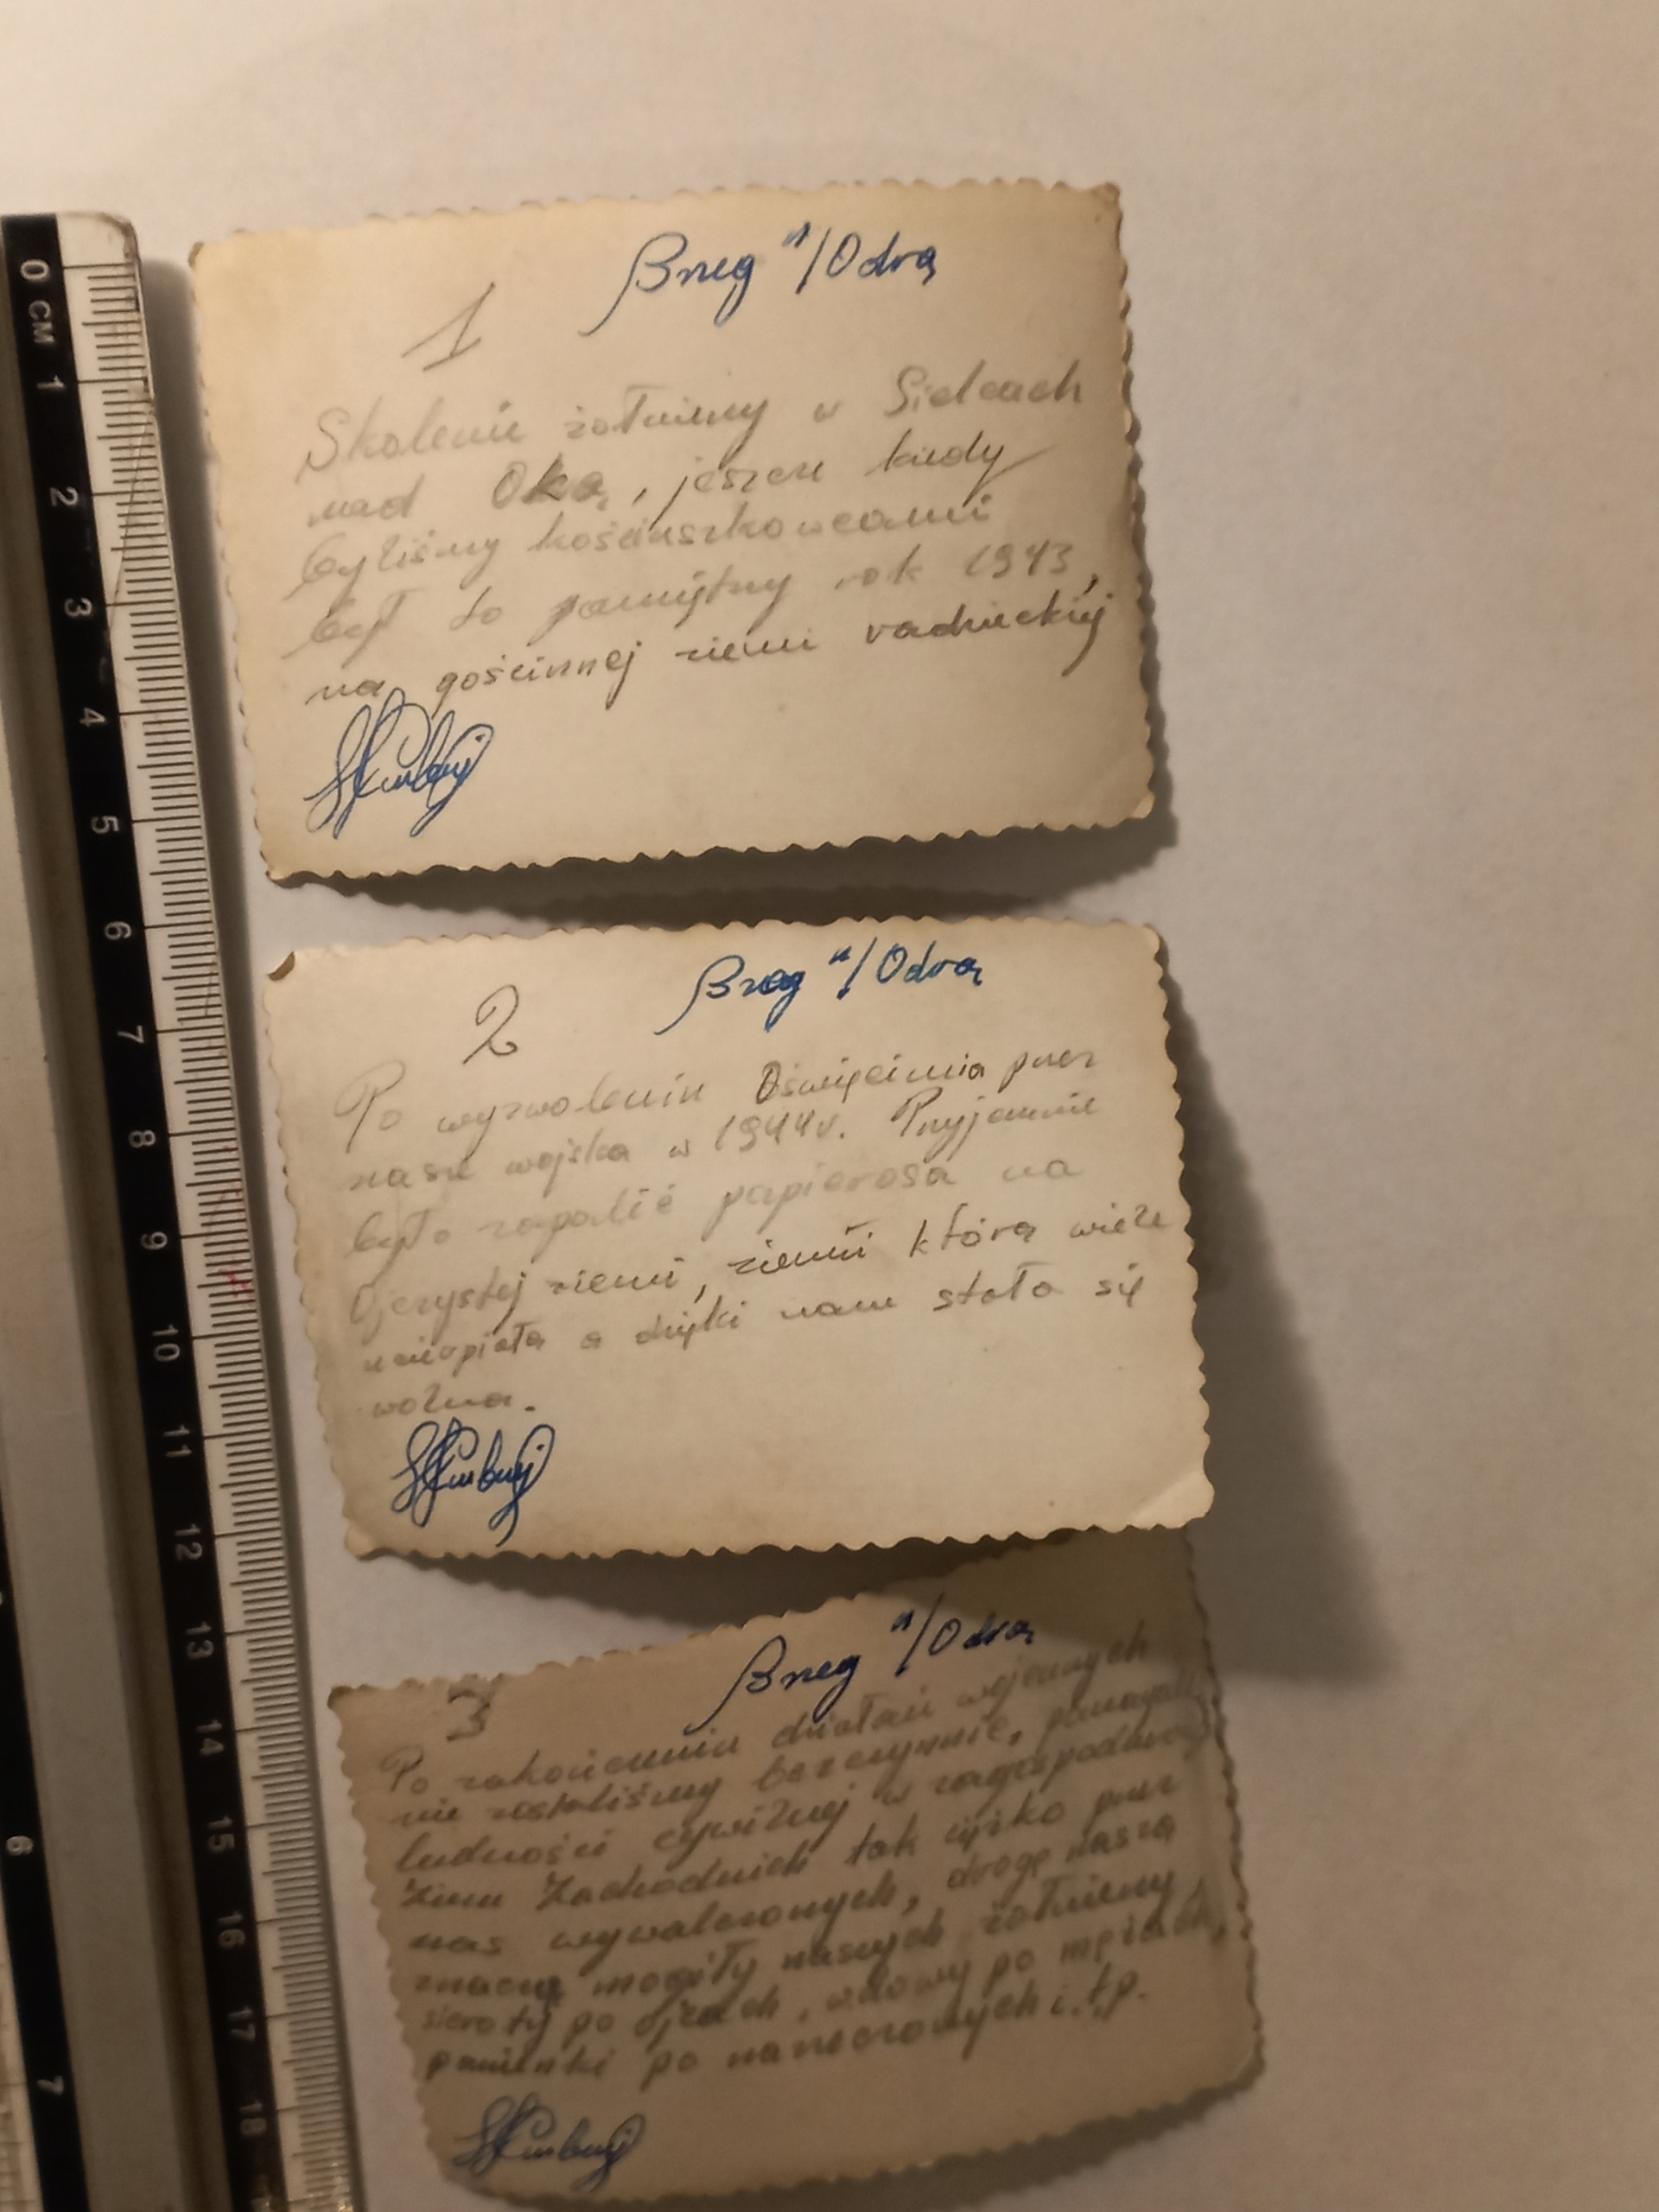 0 CM 1 2 3 4 5 6 7 8 9 10 11 12 13 14 15 16 17 18
6 7
Brzeg n/Odrą
1
Szkolenie żołnierzy w Sielcach
nad Oką, jeszcze kiedy
byliśmy kościuszkowcami
był to pamiętny rok 1943,
na gościnnej ziemi radzieckiej
Brzeg n/Odrą
2
Po wyzwoleniu Oświęcimia przez
nasze wojska w 1944r. Przyjemnie
było zapalić papierosa na
Ojczystej ziemi, ziemi która wiele
ucierpiała a dzięki nam stała się
wolna.
Brzeg n/Odrą
3
Po zakończeniu działań wojennych
nie zostaliśmy bezczynnie, pomagali
ludności cywilnej w
Ziem Zachodnich tak ciężko przez
nas wywalczonych, drogę naszą
znaczą mogiły naszych żołnierzy,
sieroty po ojcach, wdowy po mężach,
panienki po narzeczonych i.t.p.